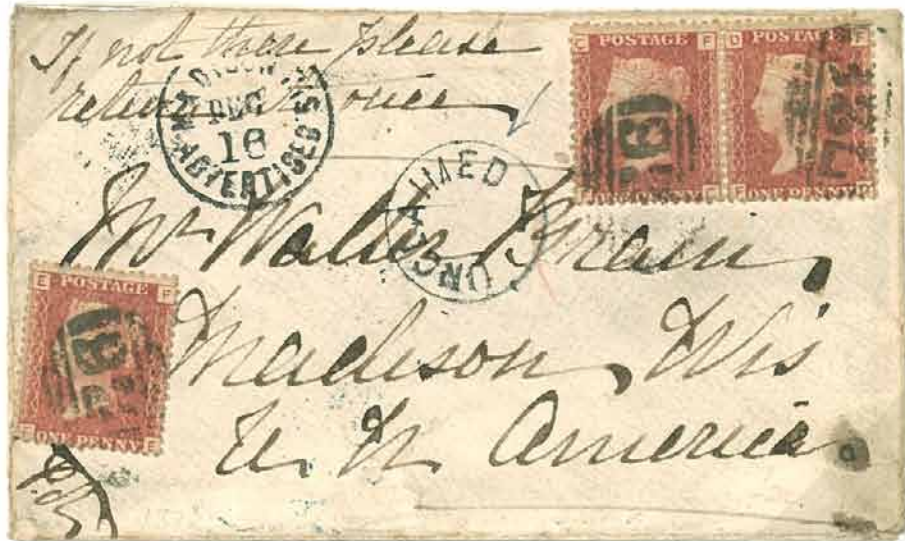 If not there please
return at once
MADISON WIS
DEC
16
ADVERTISED
UNCLAIMED
C POSTAGE F
D POSTAGE F
ONE PENNY
F ONE PENNY D
Mr Walter Brain,
Madison, Wis
U. N. America
E POSTAGE F
F ONE PENNY E